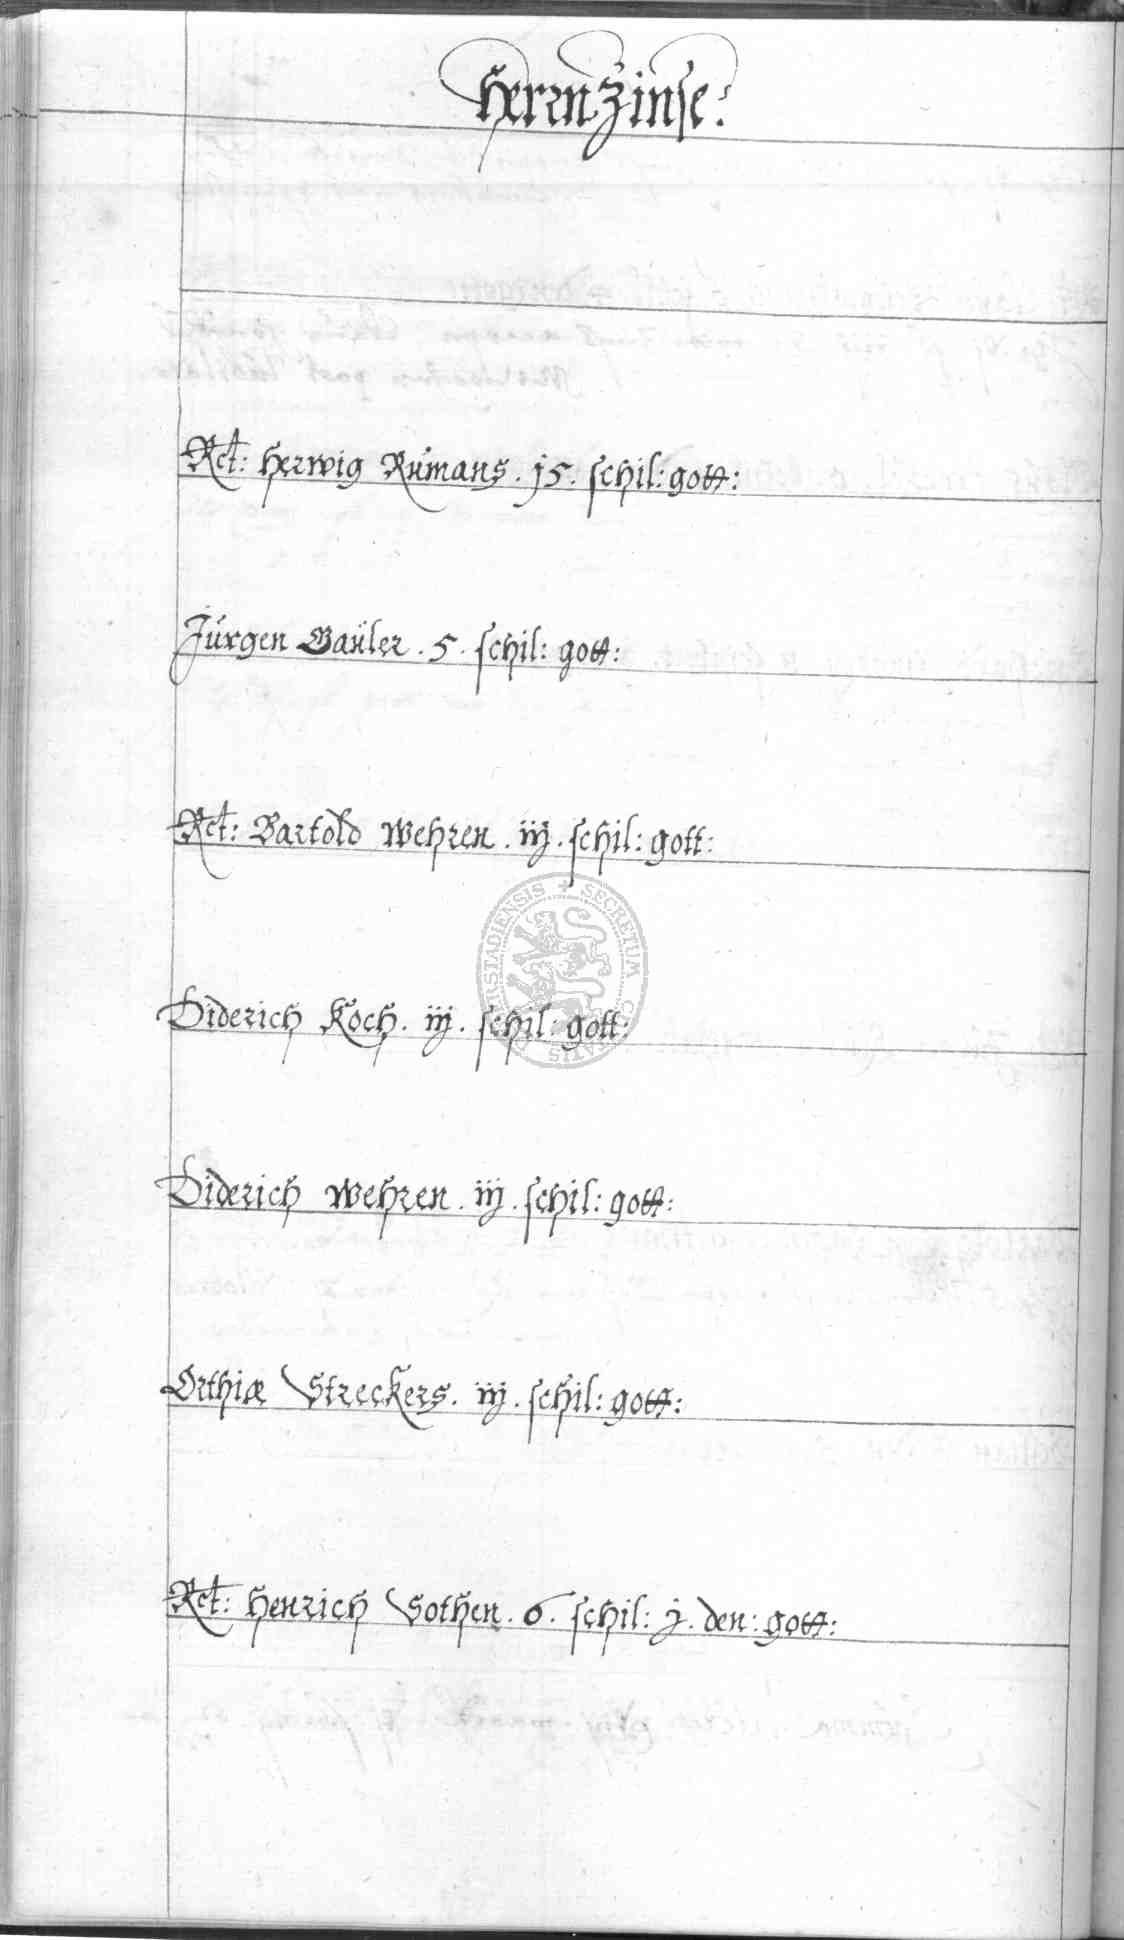 Herenzinse:
Rct: Herwig Rumans . j5 . schil: gott:
Jürgen Baüler . 5 . schil: gott:
Rct: Bartold Wehren . iij . schil: gott:
Diderich Koch . iij . schil: gott:
Diderich Wehren . iij . schil: gott:
Orthiæ Streckers . iij . schil: gott:
Rct: Henrich Sothen . 6 . schil: j . den: gott:
SECRETUM